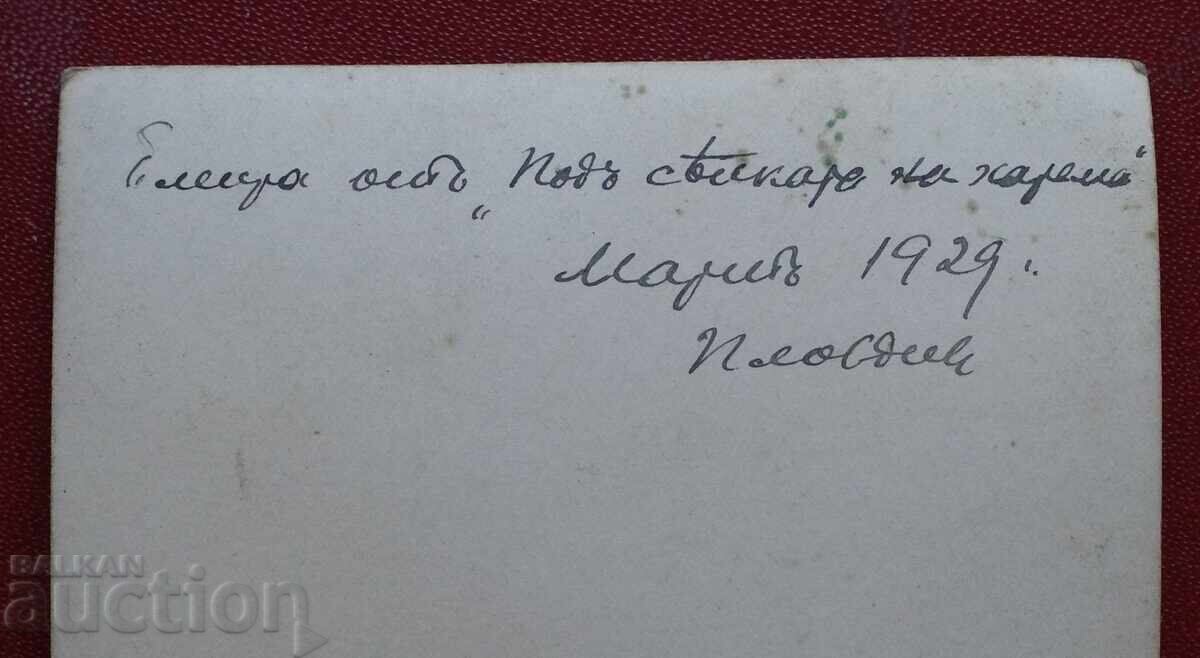 Елмира отъ „Подъ сѣнката на харема“
Мартъ 1929.
Пловдив
BALKAN
auction